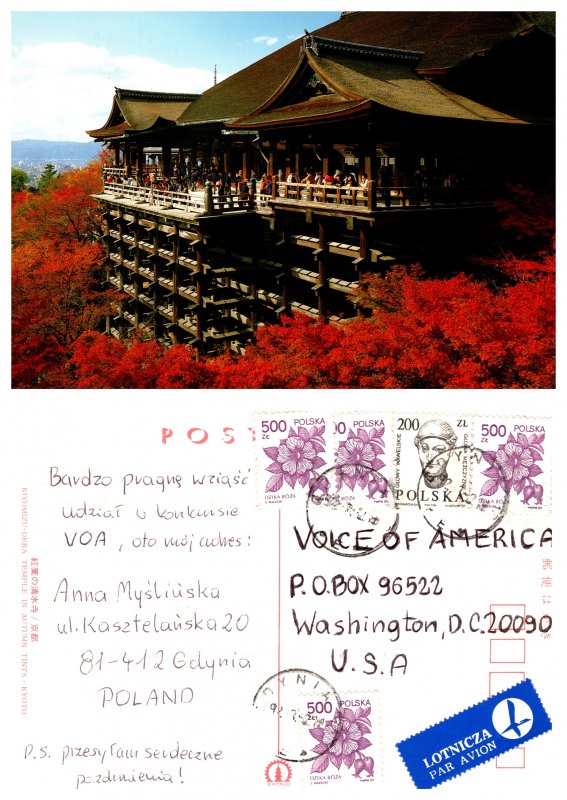 POS
500
ZŁ
POLSKA
DZIKA RÓŻA
200
ZŁ
GŁOWY WAWELSKIE
POLSKA
500
ZŁ
POLSKA
DZIKA RÓŻA
Bardzo pragnę wziąść
udział w konkursie
VOA, oto mój adres:
Anna Myślińska
ul. Kasztelańska 20
81-412 Gdynia
POLAND
P.S. przesyłam serdeczne
pozdrowienia!
VOICE OF AMERICA
P.O.BOX 96522
Washington, D.C.20090
U.S.A
紅葉の清水寺/京都
KIYOMIZU-DERA TEMPLE IN AUTUMN TINTS・KYOTO
郵便は
500
ZŁ
POLSKA
DZIKA RÓŻA
LOTNICZA
PAR AVION